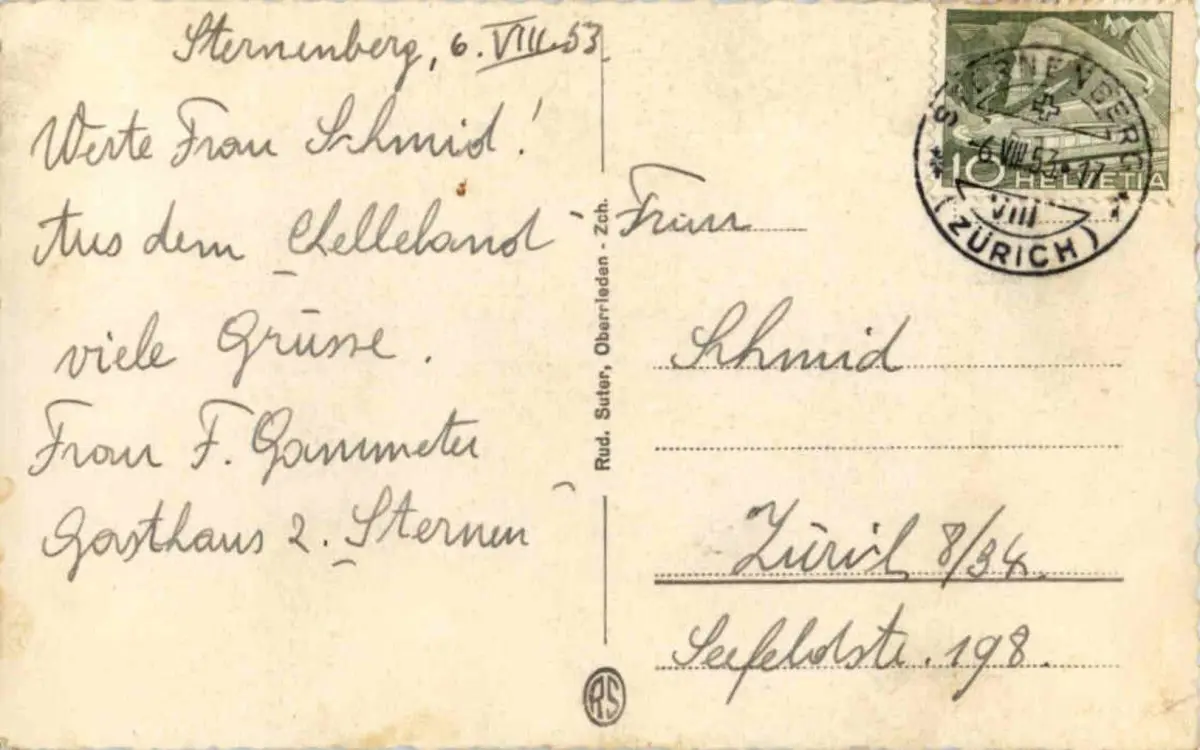 Sternenberg, 6. VIII. 53
Werte Frau Schmid!
Aus dem Chelleland
viele Grüsse.
Frau F. Gammeter
Gasthaus z. Sternen
Rud. Suter, Oberrieden - Zch.
RS
STERNENBERG
-6.VIII.53.-17
VIII
(ZÜRICH)
10 HELVETIA
Frau
Schmid
Zürich 8/34
Seefeldstr. 198.